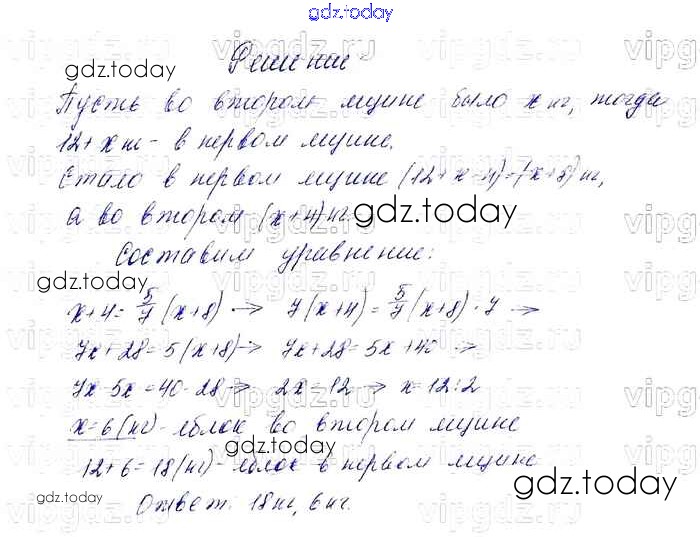 gdz.today
Решение
gdz.today
Пусть во втором ящике было x кг, тогда
12+x кг - в первом ящике.
Стало в первом ящике (12+x-4)=(x+8) кг,
а во втором (x+4) кг.
gdz.today
Составим уравнение:
gdz.today
x+4=5/7(x+8) → 7(x+4)=5/7(x+8)·7 →
7x+28=5(x+8) → 7x+28=5x+40 →
7x-5x=40-28 → 2x=12 → x=12:2
x=6(кг) - яблок во втором ящике
gdz.today
12+6=18(кг) - яблок в первом ящике
gdz.today
gdz.today
Ответ. 18 кг, 6 кг.